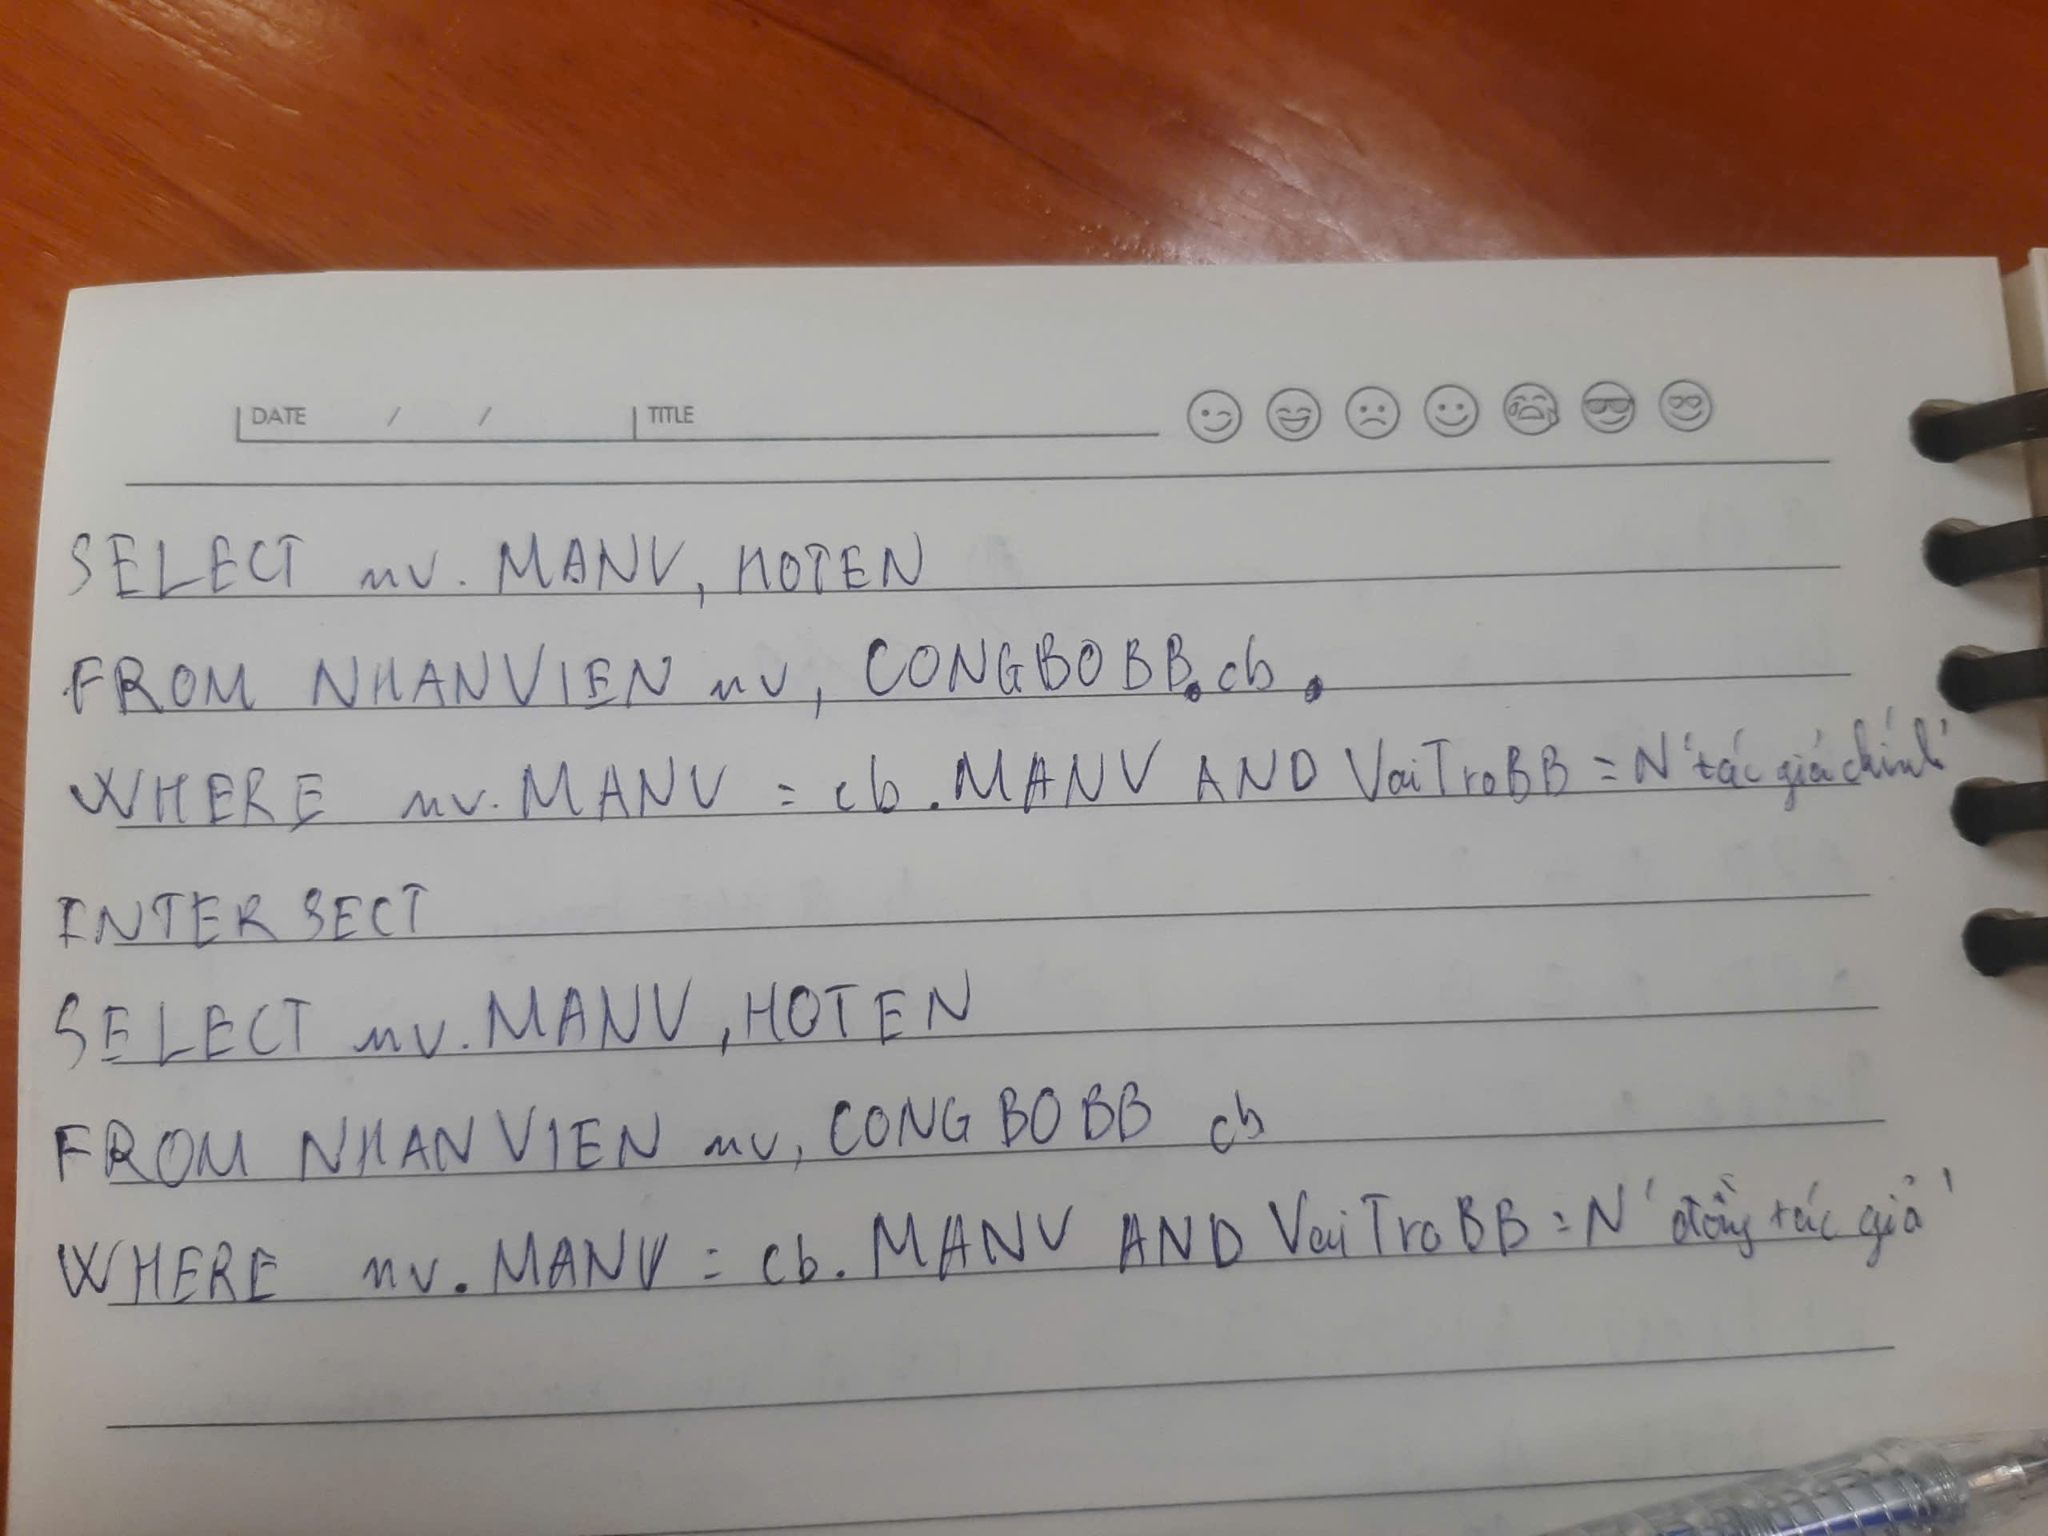 DATE / / TITLE
SELECT nv. MANV, HOTEN
FROM NHANVIEN nv, CONGBOBB.cb .
WHERE nv. MANV = cb. MANV AND VaiTroBB = N'tác giả chính'
INTERSECT
SELECT nv. MANV, HOTEN
FROM NHANVIEN nv, CONGBOBB cb
WHERE nv. MANV = cb. MANV AND VaiTroBB = N'đồng tác giả'